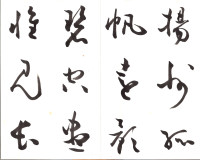 揚州孤
帆遠影
碧空盡
惟見長